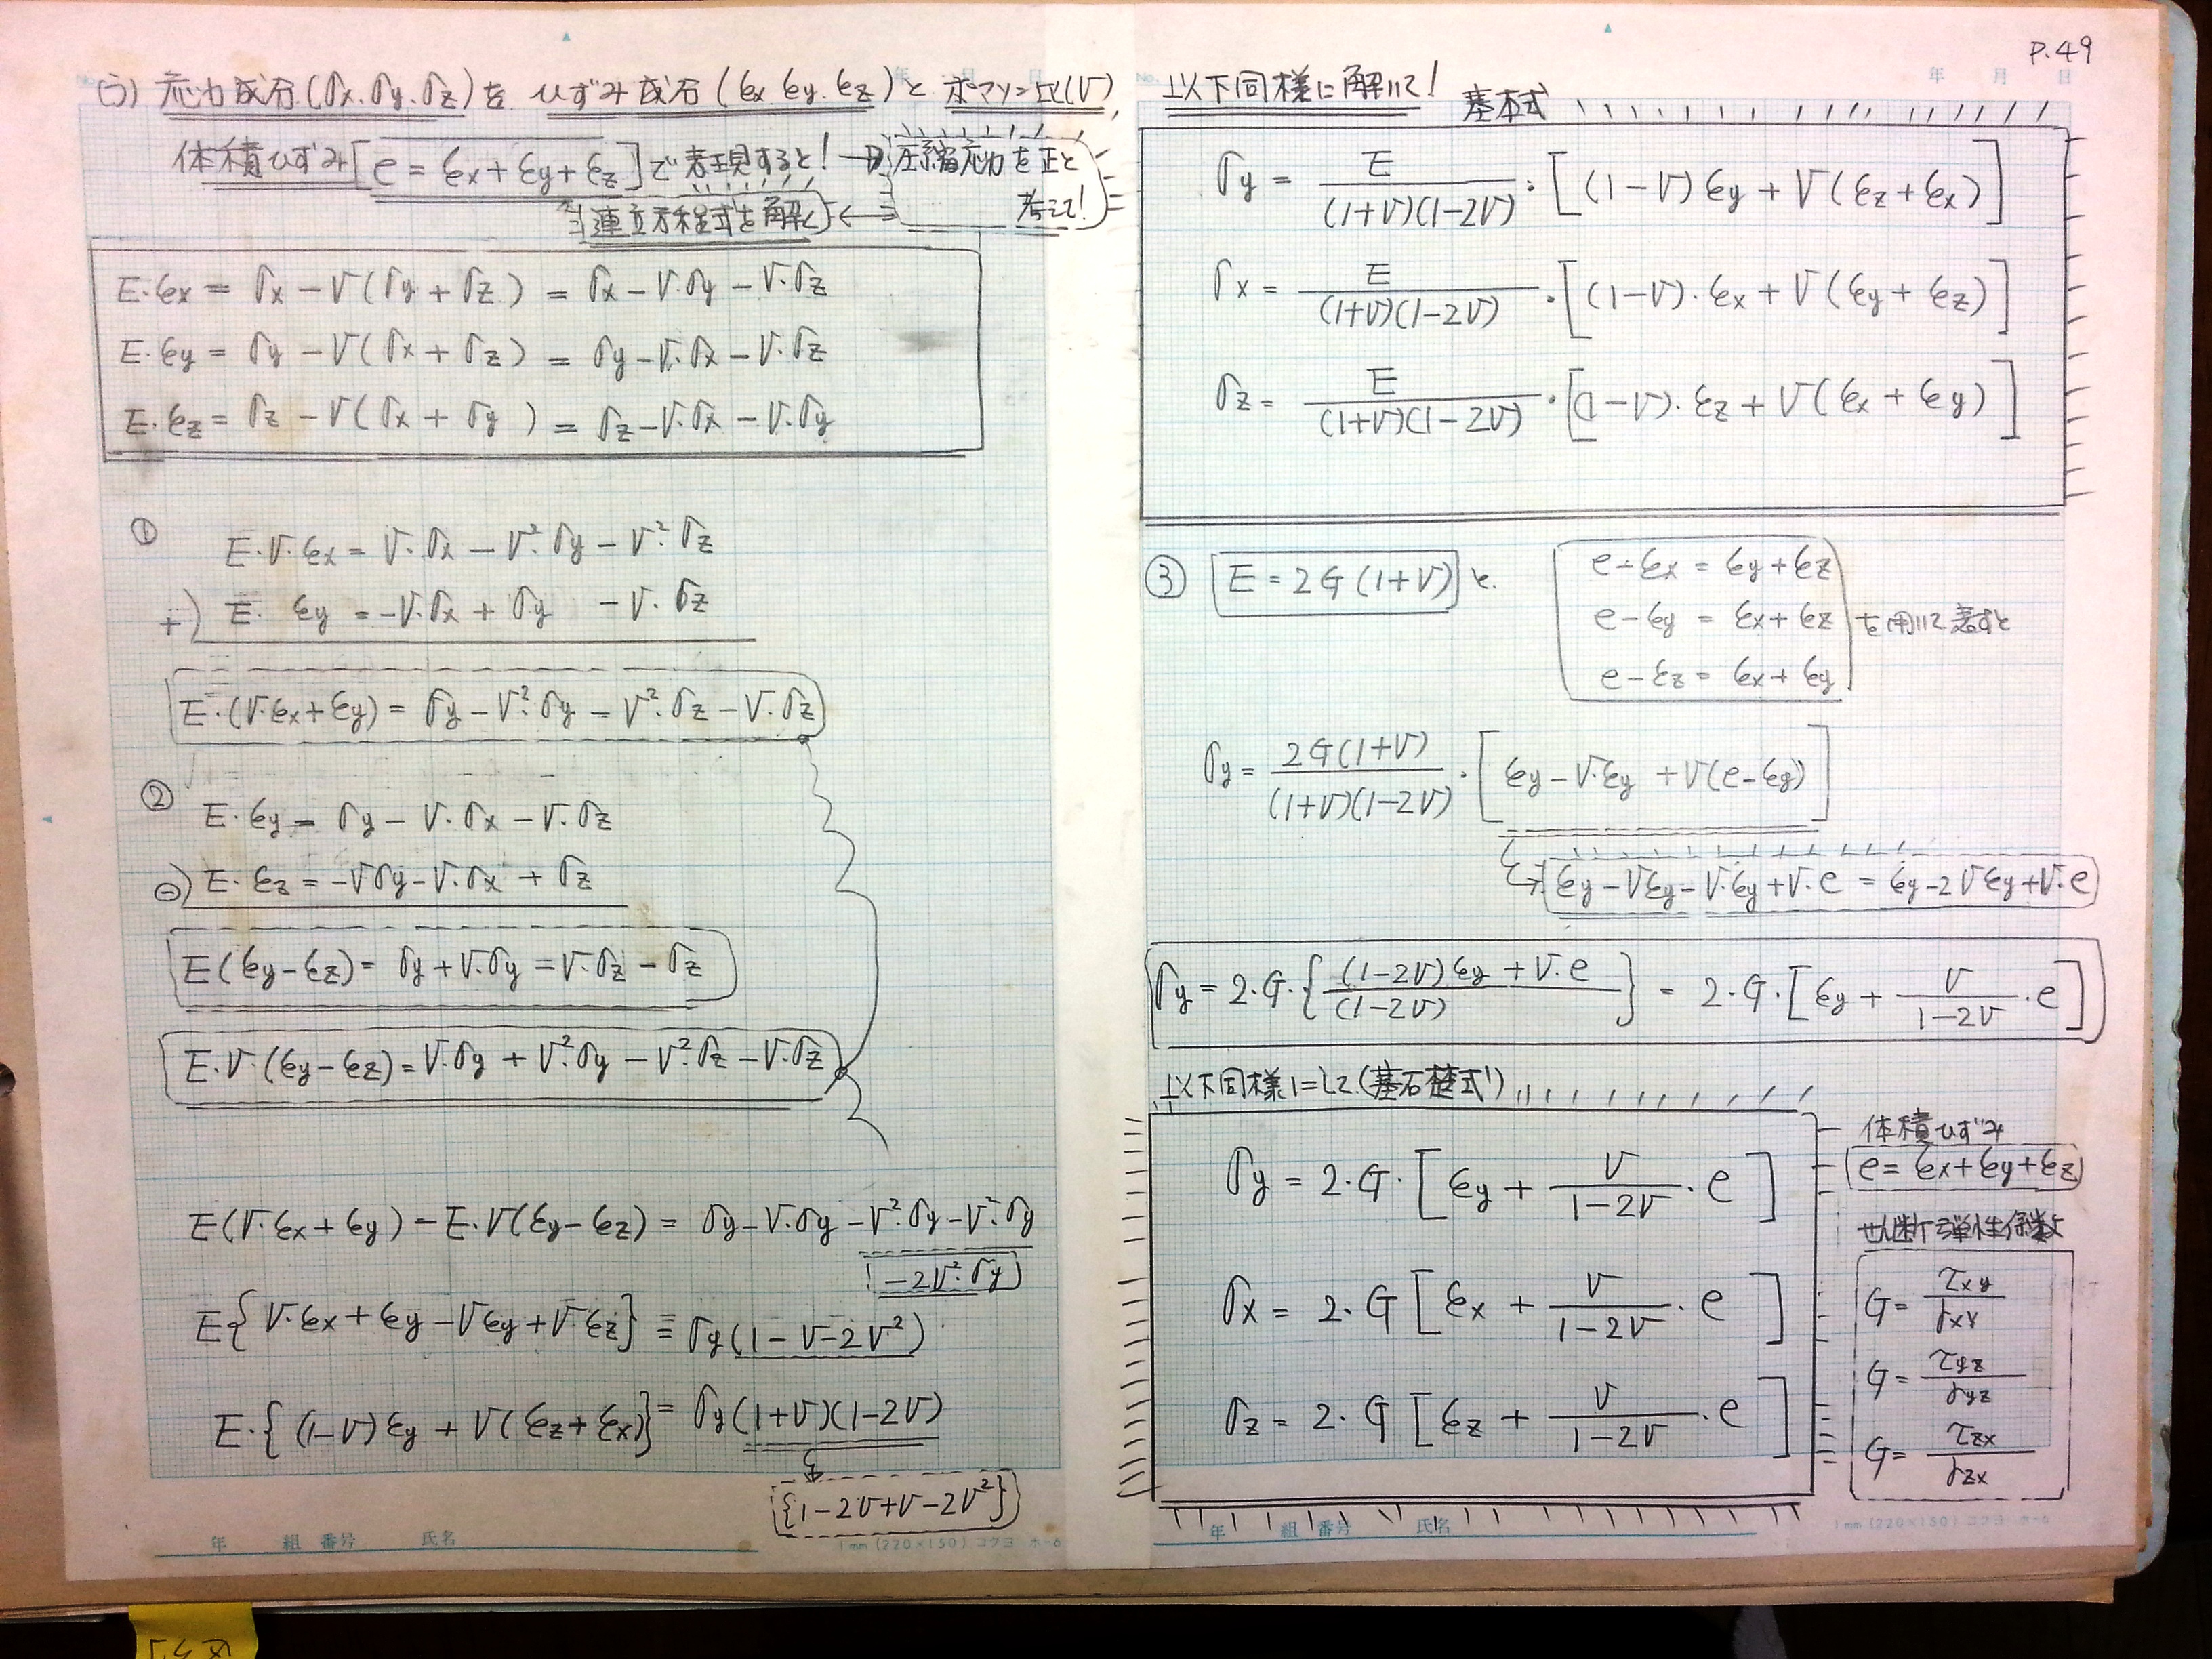 P.49
う) 応力成分(σx.σy.σz)を ひずみ成分(εx εy.εz)と ポアソン比(ν),
体積ひずみ[e = εx + εy + εz]で表現すると!→圧縮応力を正と
考えて!
連立方程式を解く←
E・εx = σx − ν(σy + σz) = σx − ν・σy − ν・σz
E・εy = σy − ν(σx + σz) = σy − ν・σx − ν・σz
E・εz = σz − ν(σx + σy) = σz − ν・σx − ν・σy
①
E・ν・εx = ν・σx − ν²・σy − ν²・σz
+) E・ εy = −ν・σx + σy − ν・σz
E・(ν・εx + εy) = σy − ν²・σy − ν²・σz − ν・σz
②
E・εy = σy − ν・σx − ν・σz
⊖) E・εz = −νσy − ν・σx + σz
E(εy − εz) = σy + ν・σy = ν・σz − σz
E・ν・(εy − εz) = ν・σy + ν²・σy − ν²・σz − ν・σz
E(ν・εx + εy) − E・ν(εy − εz) = σy − ν・σy − ν²・σy − ν²・σy
−2ν²・σy
E{ν・εx + εy − νεy + ν・εz} = σy(1 − ν − 2ν²)
E・{(1−ν)εy + ν(εz + εx)} = σy(1+ν)(1−2ν)
{1−2ν+ν−2ν²}
年 組 番号 氏名
1mm (220×150) コクヨ ホ-6
年 月 日
以下同様に解いて! 基本式
σy = E/((1+ν)(1−2ν))・[(1−ν)εy + ν(εz + εx)]
σx = E/((1+ν)(1−2ν))・[(1−ν)・εx + ν(εy + εz)]
σz = E/((1+ν)(1−2ν))・[(1−ν)・εz + ν(εx + εy)]
③ E = 2G(1+ν) と.
e − εx = εy + εz
e − εy = εx + εz を用いて表すと
e − εz = εx + εy
σy = 2G(1+ν)/((1+ν)(1−2ν))・[εy − ν・εy + ν(e − εy)]
εy − νεy − ν・εy + ν・e = εy − 2νεy + ν・e
σy = 2・G・{((1−2ν)εy + ν・e)/(1−2ν)} = 2・G・[εy + ν/(1−2ν)・e]
以下同様にして.(基礎式)
σy = 2・G・[εy + ν/(1−2ν)・e]
σx = 2・G[εx + ν/(1−2ν)・e]
σz = 2・G[εz + ν/(1−2ν)・e]
体積ひずみ
e = εx + εy + εz
せん断弾性係数
G = τxy/γxy
G = τyz/γyz
G = τzx/γzx
年 組 番号 氏名
1mm (220×150) コクヨ ホ-6